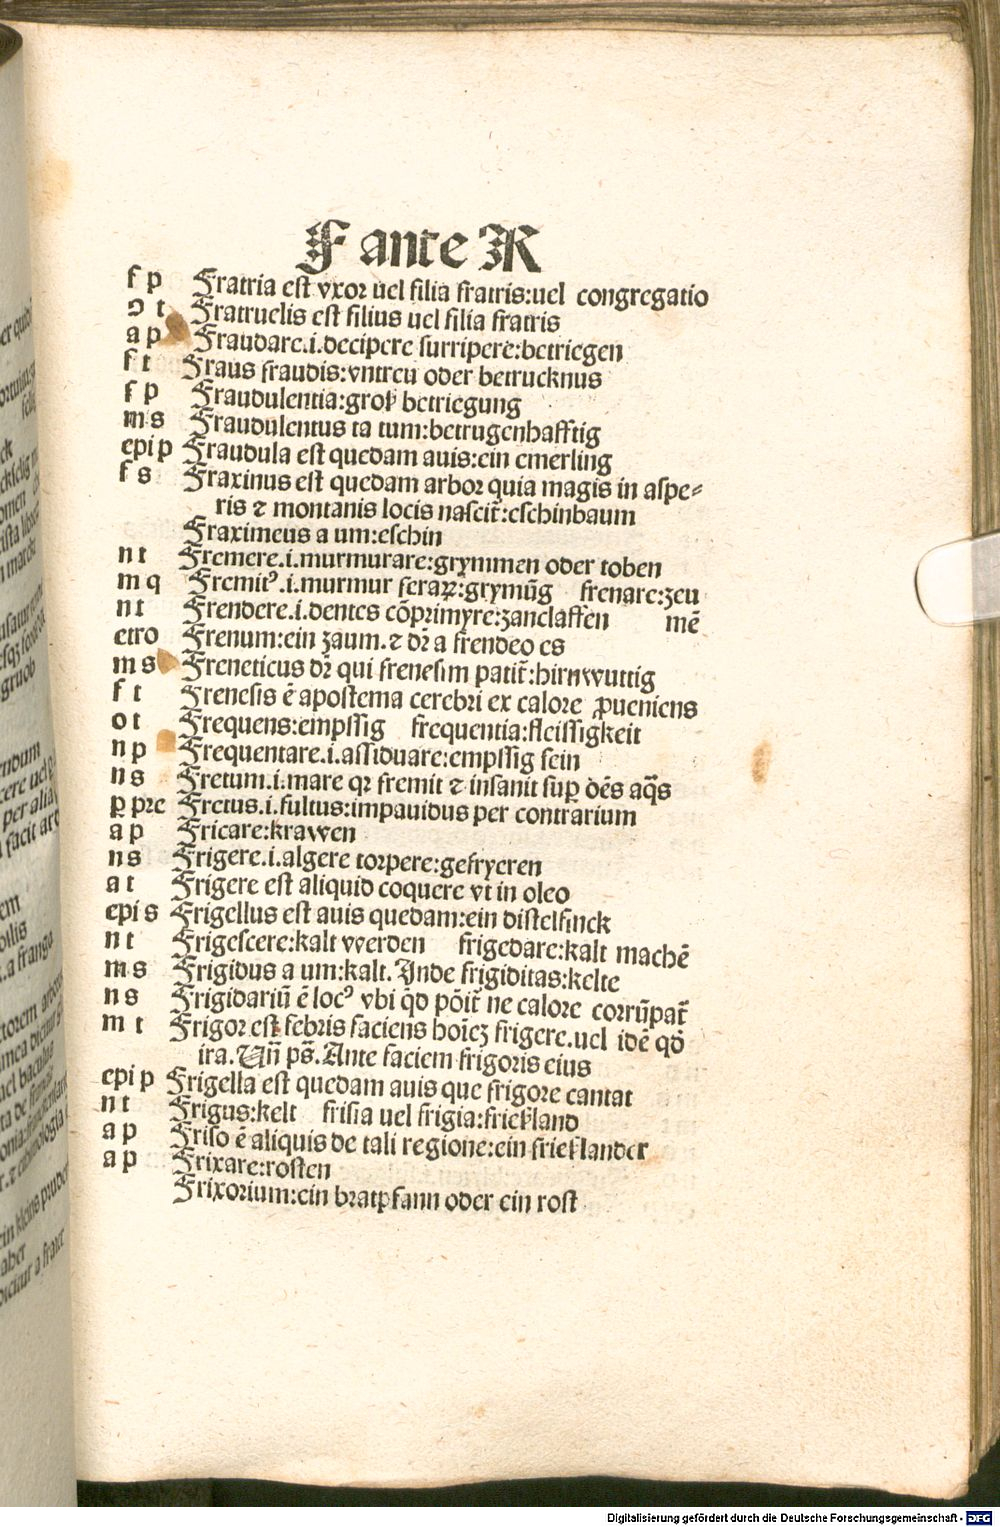 F ante R
f p Fratria est vxor uel filia fratris:uel congregatio
ꝯ t Fratruelis est filius uel filia fratris
a p Fraudare.i.decipere surripere:betriegen
f t Fraus fraudis:vntreu oder betrucknus
f p Fraudulentia:groß betriegung
m s Fraudulentus ta tum:betrugenhafftig
epi p Fraudula est quedam auis:ein emerling
f s Fraxinus est quedam arbor quia magis in aspe⸗
ris ⁊ montanis locis nascit̄:eschinbaum
Fraximeus a um:eschin
n t Fremere.i.murmurare:grymmen oder toben
m q Fremitꝰ.i.murmur feraꝝ:grymūg frenare:zeu
n t Frendere.i.dentes cōprimyre:zanclaffen mē
etro Frenum:ein zaum.⁊ dr̄ a frendeo es
m s Freneticus dr̄ qui frenesim patit̄:hirnwuttig
f t Frenesis ē apostema cerebri ex calore ꝓueniens
o t Frequens:empssig frequentia:fleissigkeit
n p Frequentare.i.assiduare:empssig sein
n s Fretum.i.mare qꝛ fremit ⁊ insanit suꝑ oēs aq̄s
ꝑ pre Fretus.i.fultus:impauidus per contrarium
a p Fricare:krawen
n s Frigere.i.algere torpere:gefryeren
a t Frigere est aliquid coquere vt in oleo
epi s Frigellus est auis quedam:ein distelfinck
n t Frigescere:kalt werden frigedare:kalt machē
m s Frigidus a um:kalt.Inde frigiditas:kelte
n s Frigidariū ē locꝰ vbi q̄d pōit̄ ne calore corrūpat̄
m t Frigor est febris faciens hoīeꝫ frigere.uel idē qō
ira.Vn̄ ps̄.Ante faciem frigoris eius
epi p Frigella est quedam auis que frigore cantat
n t Frigus:kelt frisia uel frigia:frießland
a p Friso ē aliquis de tali regione:ein frießlander
a p Frixare:rosten
Frixorium:ein bratpfann oder ein rost
Digitalisierung gefördert durch die Deutsche Forschungsgemeinschaft - DFG